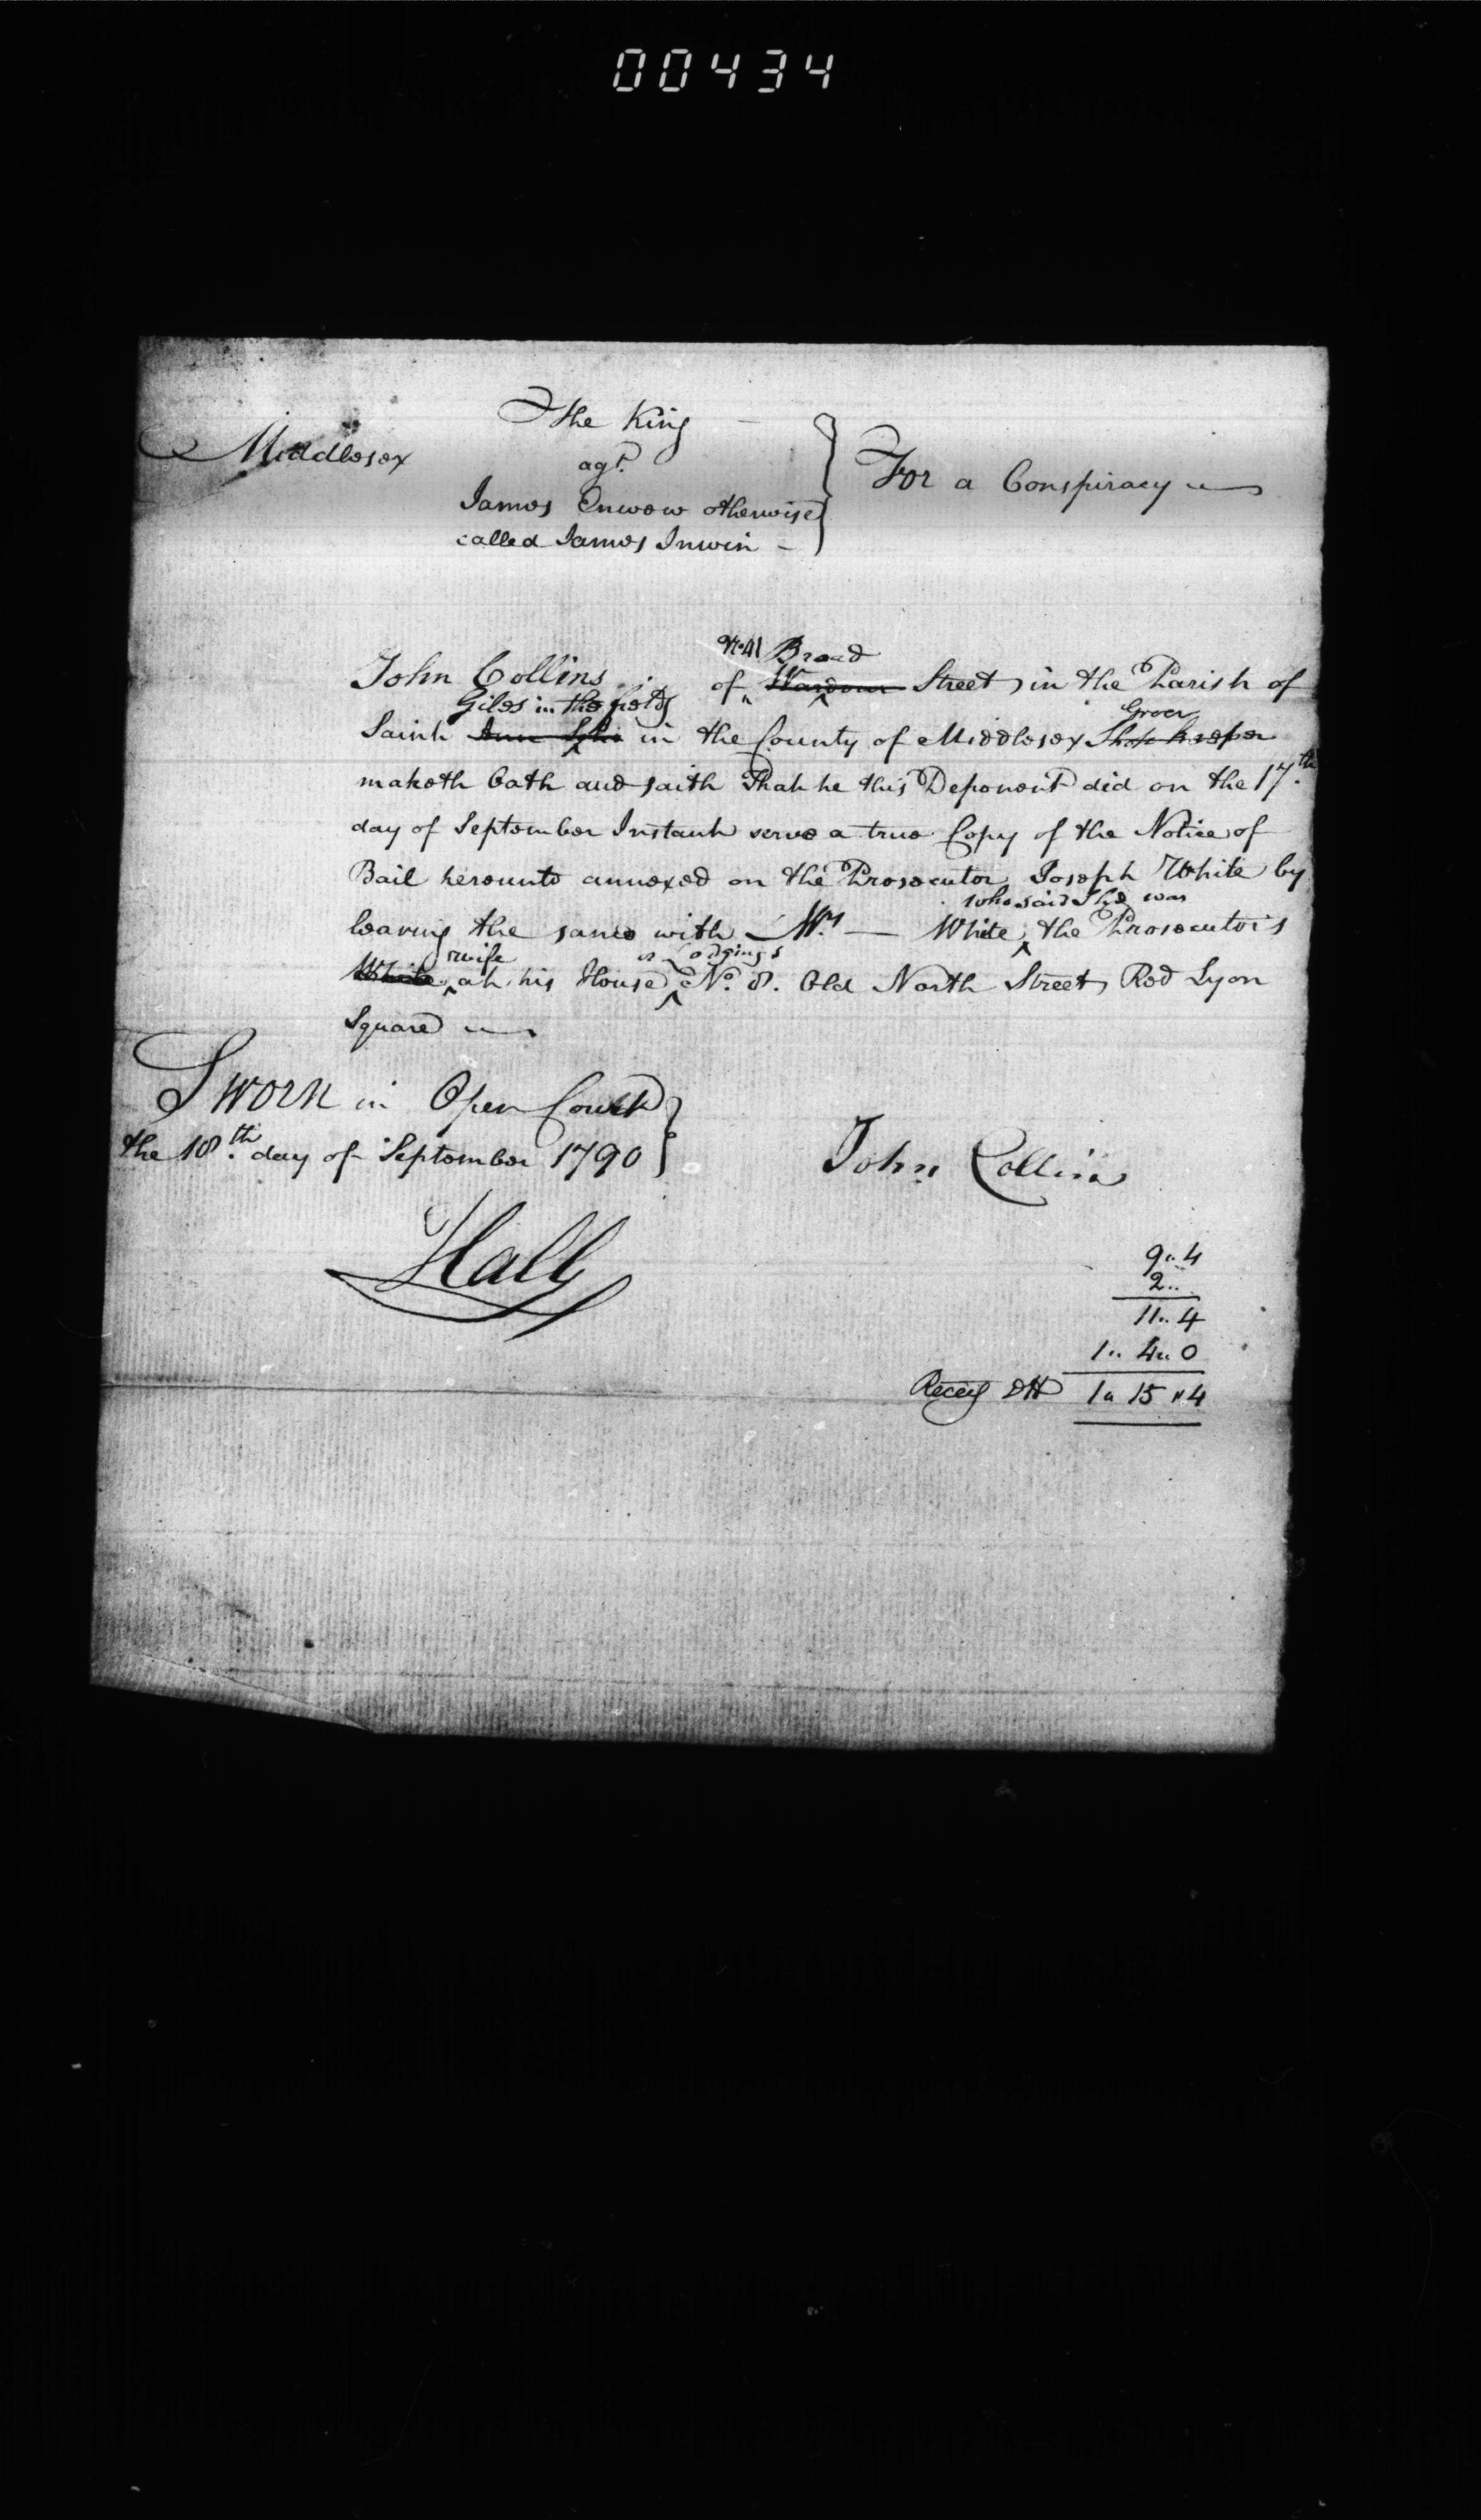 00434
The King
Middlesex
agt.
For a Conspiracy
James Enwow otherwise
called James Inwin
No. 41 Broad
John Collins of Wardour Street, in the Parish of
Giles in the fields Grocer
Saint Ann Soho in the County of Middlesex Shop keeper
maketh Oath and saith That he this Deponent did on the 17.th
day of September Instant serve a true Copy of the Notice of
Bail hereunto annexed on the Prosecutor Joseph White by
who said She was
leaving the same with Mrs. — White, the Prosecutor's
wife or Lodgings
White at his House No. 8. Old North Street, Red Lyon
Square
Sworn in Open Court
the 18.th day of September 1790
John Collins
Hall
9 .. 4
2 ..
11 .. 4
1 .. 4 .. 0
1 .. 15 .. 4